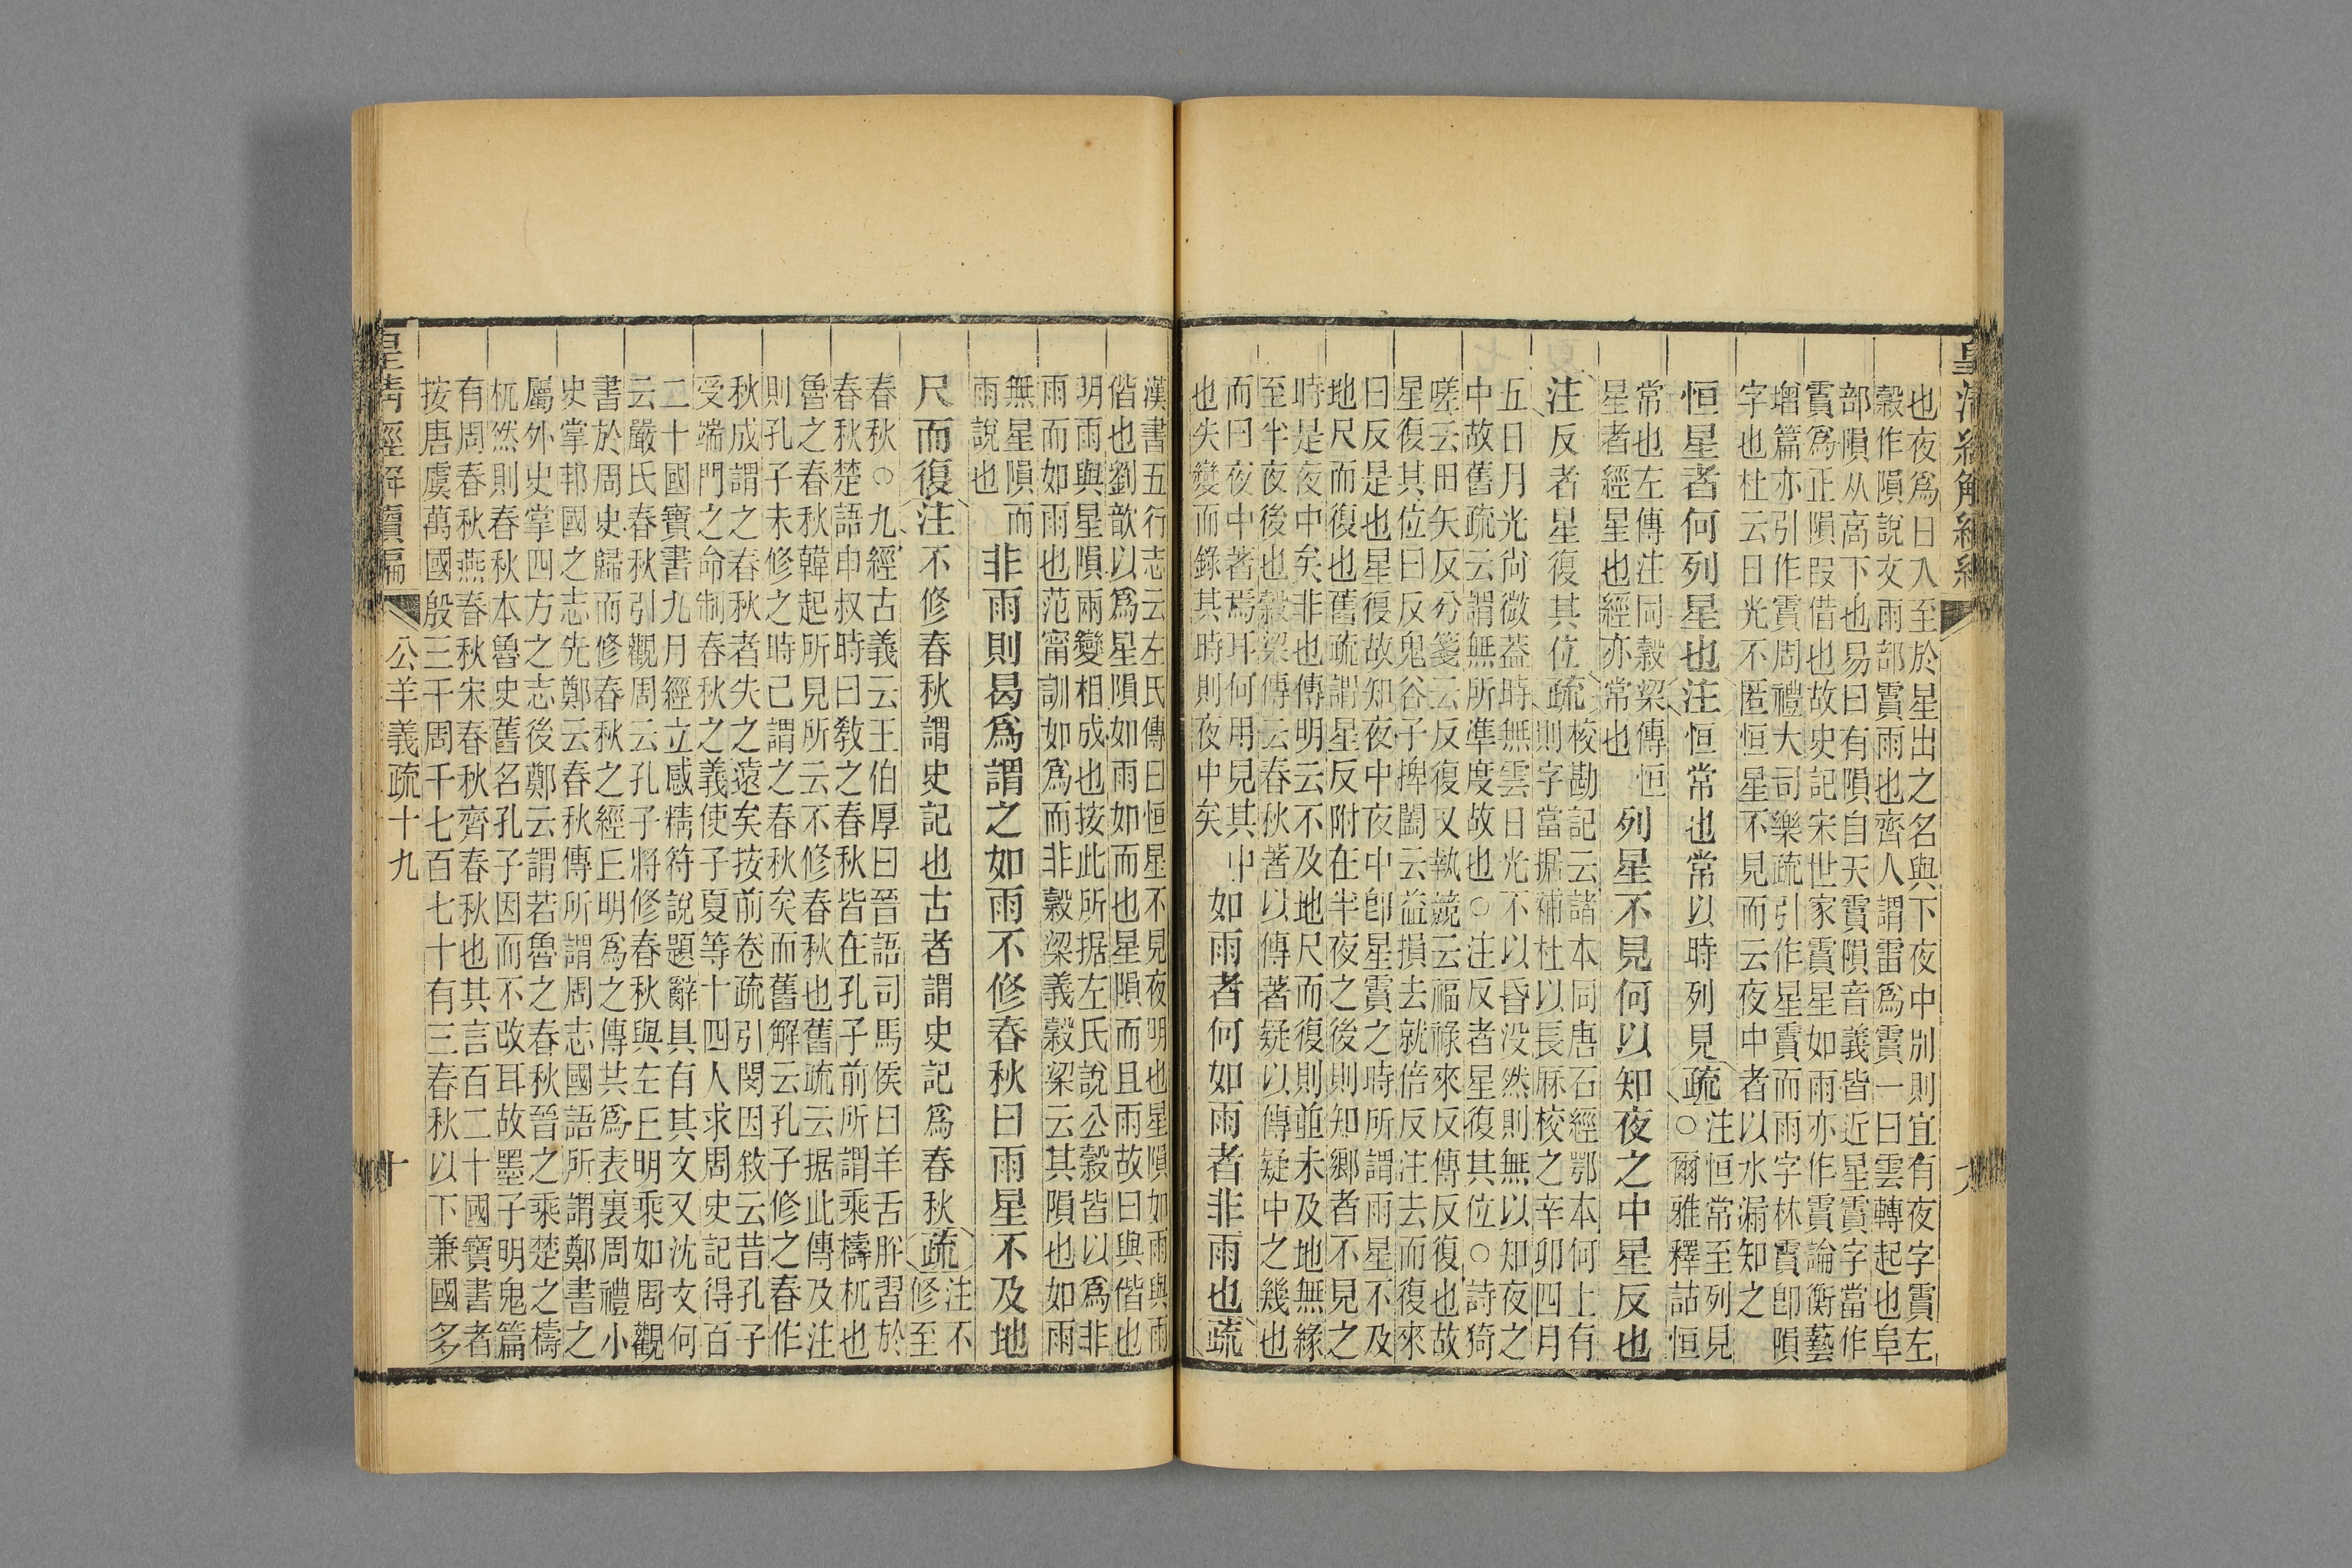 皇清經解續編
也夜爲日入至於星出之名與下夜中別則宜有夜字霣左
穀作隕說文雨部霣雨也齊人謂雷爲霣一曰雲轉起也阜
部隕从高下也易曰有隕自天霣隕音義皆近星霣字當作
霣爲正隕叚借也故史記宋世家霣星如雨亦作霣論衡藝
增篇亦引作霣周禮大司樂疏引作星霣而雨字林霣卽隕
字也杜云日光不匿恒星不見而云夜中者以水漏知之
恒星者何列星也注恒常也常以時列見疏注恒常至列見
○爾雅釋詁恒
常也左傳注同穀梁傳恒
星者經星也經亦常也
列星不見何以知夜之中星反也
注反者星復其位疏校勘記云諸本同唐石經鄂本何上有
則字當据補杜以長厤校之辛卯四月
五日月光尚微蓋時無雲日光不以昏没然則無以知夜之
中故舊疏云謂無所準度故也○注反者星復其位○詩猗
嗟云田矢反分箋云反復又執競云福祿來反傳反復也故
星復其位曰反鬼谷子捭闔云益損去就倍反注去而復來
曰反是也星復故知夜中夜中卽星霣之時所謂雨星不及
地尺而復也舊疏謂星反附在半夜之後則知鄉者不見之
時是夜中矣非也傳明云不及地尺而復則並未及地無緣
至半夜後也穀梁傳云春秋著以傳著疑以傳疑中之幾也
而曰夜中著焉耳何用見其中
也失變而錄其時則夜中矣
如雨者何如雨者非雨也疏
漢書五行志云左氏傳曰恒星不見夜明也星隕如雨與雨
偕也劉歆以爲星隕如雨如而也星隕而且雨故曰與偕也
明雨與星隕兩變相成也按此所据左氏說公穀皆以爲非
雨而如雨也范甯訓如爲而非穀梁義穀梁云其隕也如雨
無星隕而
雨說也
非雨則曷爲謂之如雨不修春秋曰雨星不及地
尺而復注不修春秋謂史記也古者謂史記爲春秋疏注不
修至
春秋○九經古義云王伯厚曰晉語司馬侯曰羊舌肸習於
春秋楚語申叔時曰敎之春秋皆在孔子前所謂乘檮杌也
魯之春秋韓起所見所云不修春秋也舊疏云据此傳及注
則孔子未修之時已謂之春秋矣而舊解云孔子修之春作
秋成謂之春秋者失之遠矣按前卷疏引閔因敘云昔孔子
受端門之命制春秋之義使子夏等十四人求周史記得百
二十國寶書九月經立感精符說題辭具有其文又沈文何
云嚴氏春秋引觀周云孔子將修春秋與左丘明乘如周觀
書於周史歸而修春秋之經丘明爲之傳共爲表裏周禮小
史掌邦國之志先鄭云春秋傳所謂周志國語所謂鄭書之
屬外史掌四方之志後鄭云謂若魯之春秋晉之乘楚之檮
杌然則春秋本魯史舊名孔子因而不改耳故墨子明鬼篇
有周春秋燕春秋宋春秋齊春秋也其言百二十國寶書者
按唐虞萬國殷三千周千七百七十有三春秋以下兼國多
皇清經解續編
公羊義疏十九
十